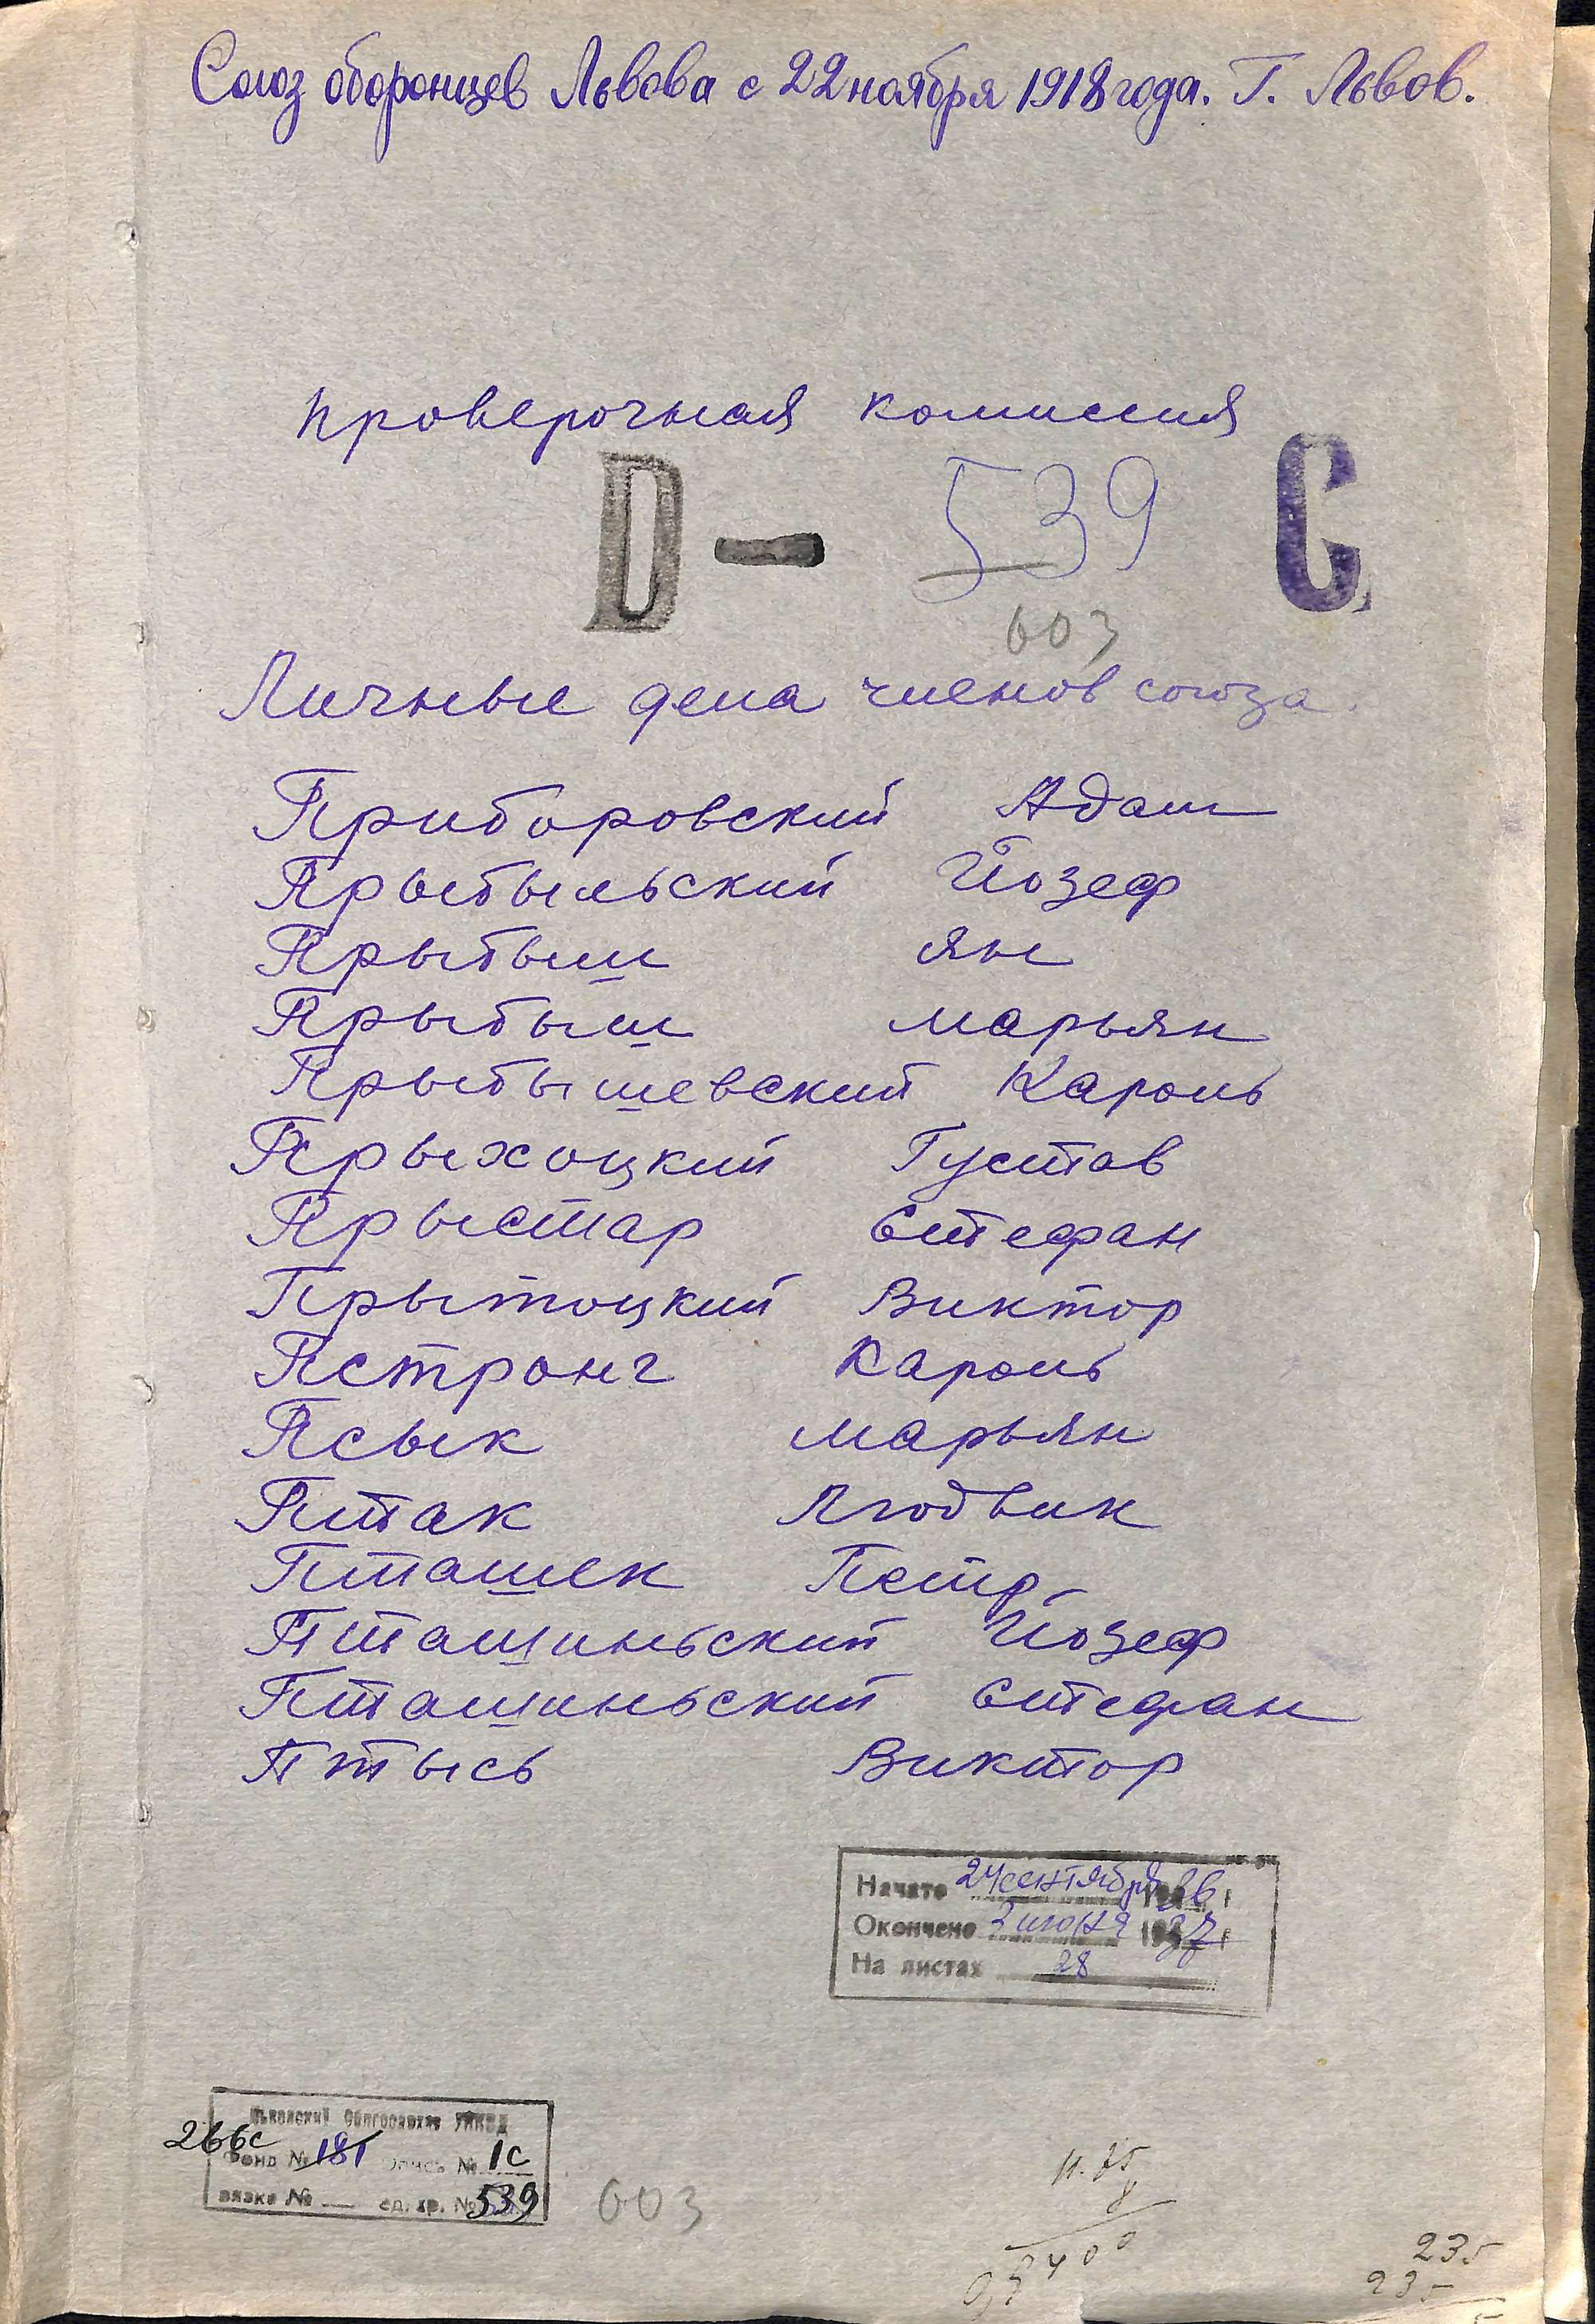 Союз оборонцев Львова с 22 ноября 1918 года. Г. Львов.
проверочная комиссия
D - 539 C
603
Личные дела членов союза.
Приборовский Адам
Прыбыльский Йозеф
Прыбыш Ян
Прыбыш Марьян
Прыбышевский Кароль
Прыхоцкий Густав
Прыстар Стефан
Прытоцкий Виктор
Пстронг Кароль
Псык Марьян
Птак Людвик
Пташек Петр
Пташиньский Йозеф
Пташиньский Стефан
Птысь Виктор
Начато 24 сентября 1936 г
Окончено 2 июня 1937 г
На листах 28
Львовский Облгосархив УНКВД
266с
Фонд № 181 Опись № 1с
вязка № — ед. хр. № 539
603
11.75
8
9400
235
235